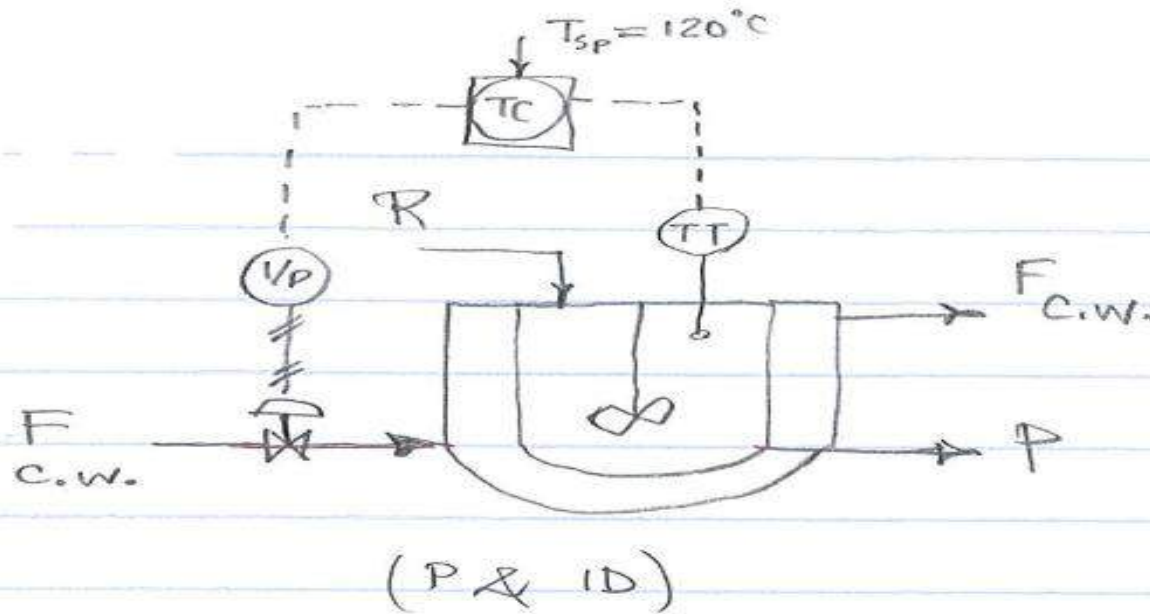 Tsp = 120°C
TC
R
TT
I/P
F
C.W.
F
C.W.
P
(P & ID)